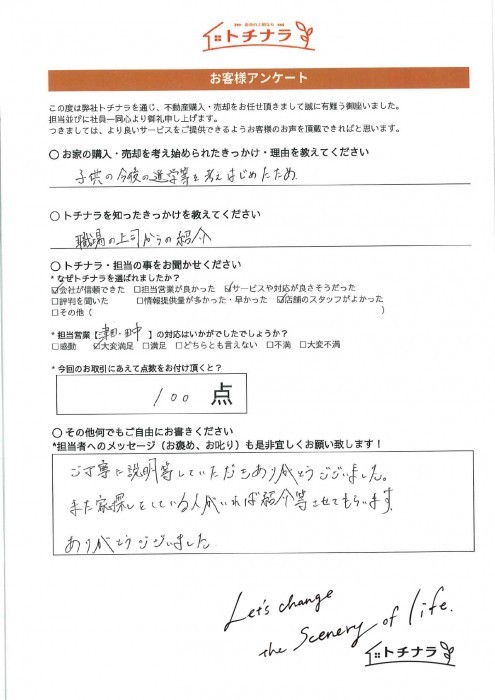 トチナラ
お客様アンケート
この度は弊社トチナラを通じ、不動産購入・売却をお任せ頂きまして誠に有難う御座いました。
担当並びに社員一同心より御礼申し上げます。
つきましては、より良いサービスをご提供できるようお客様のお声を頂戴できればと思います。
〇 お家の購入・売却を考え始められたきっかけ・理由を教えてください
子供の今後の進学等を考えはじめたため
〇 トチナラを知ったきっかけを教えてください
職場の上司からの紹介
〇 トチナラ・担当の事をお聞かせください
* なぜトチナラを選ばれましたか?
☑会社が信頼できた □担当営業が良かった ☑サービスや対応が良さそうだった
□評判を聞いた □情報提供量が多かった・早かった ☑店舗のスタッフがよかった
□その他（ ）
* 担当営業【津田・田中】の対応はいかがでしたでしょうか?
□感動 ☑大変満足 □満足 □どちらとも言えない □不満 □大変不満
* 今回のお取引にあえて点数をお付け頂くと?
100 点
〇 その他何でもご自由にお書きください
*担当者へのメッセージ（お褒め、お叱り）も是非宜しくお願い致します！
ご丁寧に説明等していただきありがとうございました。
また家探しをしている人がいれば紹介等させてもらいます。
ありがとうございました
Let's change
the Scenery of life.
トチナラ